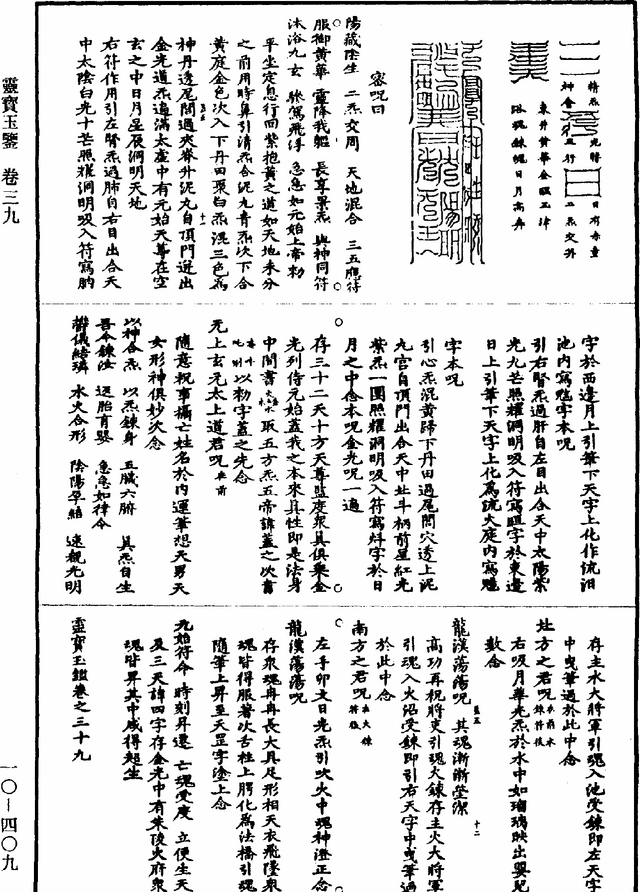 靈寶玉鑒 卷三九
一〇-四〇九
精炁
光聯
日有赤童
神會
五行
二炁交外
東井黃華金暉玉津
浴魂錬魄日月高奔
密呪曰
陽藏陰生 二炁交周 天地混合 三五應符
服御黃華 靈降我軀 長享景炁 與神同符
沐浴九玄 駄駕飛浮 急急如元始上帝勅
平坐定息行回紫抱黃之道如天地未分
之前用時鼻引清炁合泥丸青炁次下合
黃庭金色次入下丹田聚白炁混三色為
神丹透尾閭過夾脊升泥丸自頂門迸出
金光道炁遍滿太虛中有元始天尊在空
玄之中日月星辰洞明天地
右符作用引左腎炁過肺自右目出合天
中太陰白光十芒照耀洞明吸入符寫肭
字於西邊月上引筆下天字上化作流汨
池內寫魂字本呪
引右腎炁過肝自左目出合天中太陽紫
光九芒照耀洞明吸入符寫䀛字於東邊
日上引筆下天字上化為流火庭內寫魄
字本呪
引心炁混黃歸下丹田過尾閭穴透上泥
九宮自頂門出合天中北斗柄前星紅光
紫炁一團照耀洞明吸入符寫炓字於日
月之中念本呪金光呪一遍
存三十二天十方天尊監度衆真俱乘金
光列侍元始蓋我之本來真性即是法身
中間書 取五方炁五帝諱蓋之次書
以勅字蓋之先念
元上玄元太上道君呪在前
隨意祝事攝亡姓名於內運筆想天男天
女形神俱妙次念
以神合炁 以炁錬身 五臟六腑 真炁自生
吾今錬汝 返胎育嬰 急急如律令
鬱儀結璘 水火合形 陰陽孕結 速覩光明
存主水大將軍引魂入池受錬即左天字
中曳筆過於此中念
北方之君呪在前水錬符後
右吸月華光炁於水中如瑠璃映出嬰兒
數念
龍漢蕩蕩呪 其魂漸漸瑩潔
高功再祝將吏引魂火錬存主火大將軍
引魂入火沼受錬即引右天字中曳筆過
於此中念
南方之君呪在火錬符後
左手卯文日光炁引吹火中魂神澄正念
龍漢蕩蕩呪
存衆魂冉冉長大具足形相天衣飛墜衆
魂皆得服著次舌柱上腭化為法橋引魂
隨筆上昇至天罡字塗上念
元始符命 時刻昇遷 亡魂受度 立便生天
及三天諱四字存金光中有朱陵火府衆
魂皆昇其中咸得超生
靈寶玉鑑卷之三十九